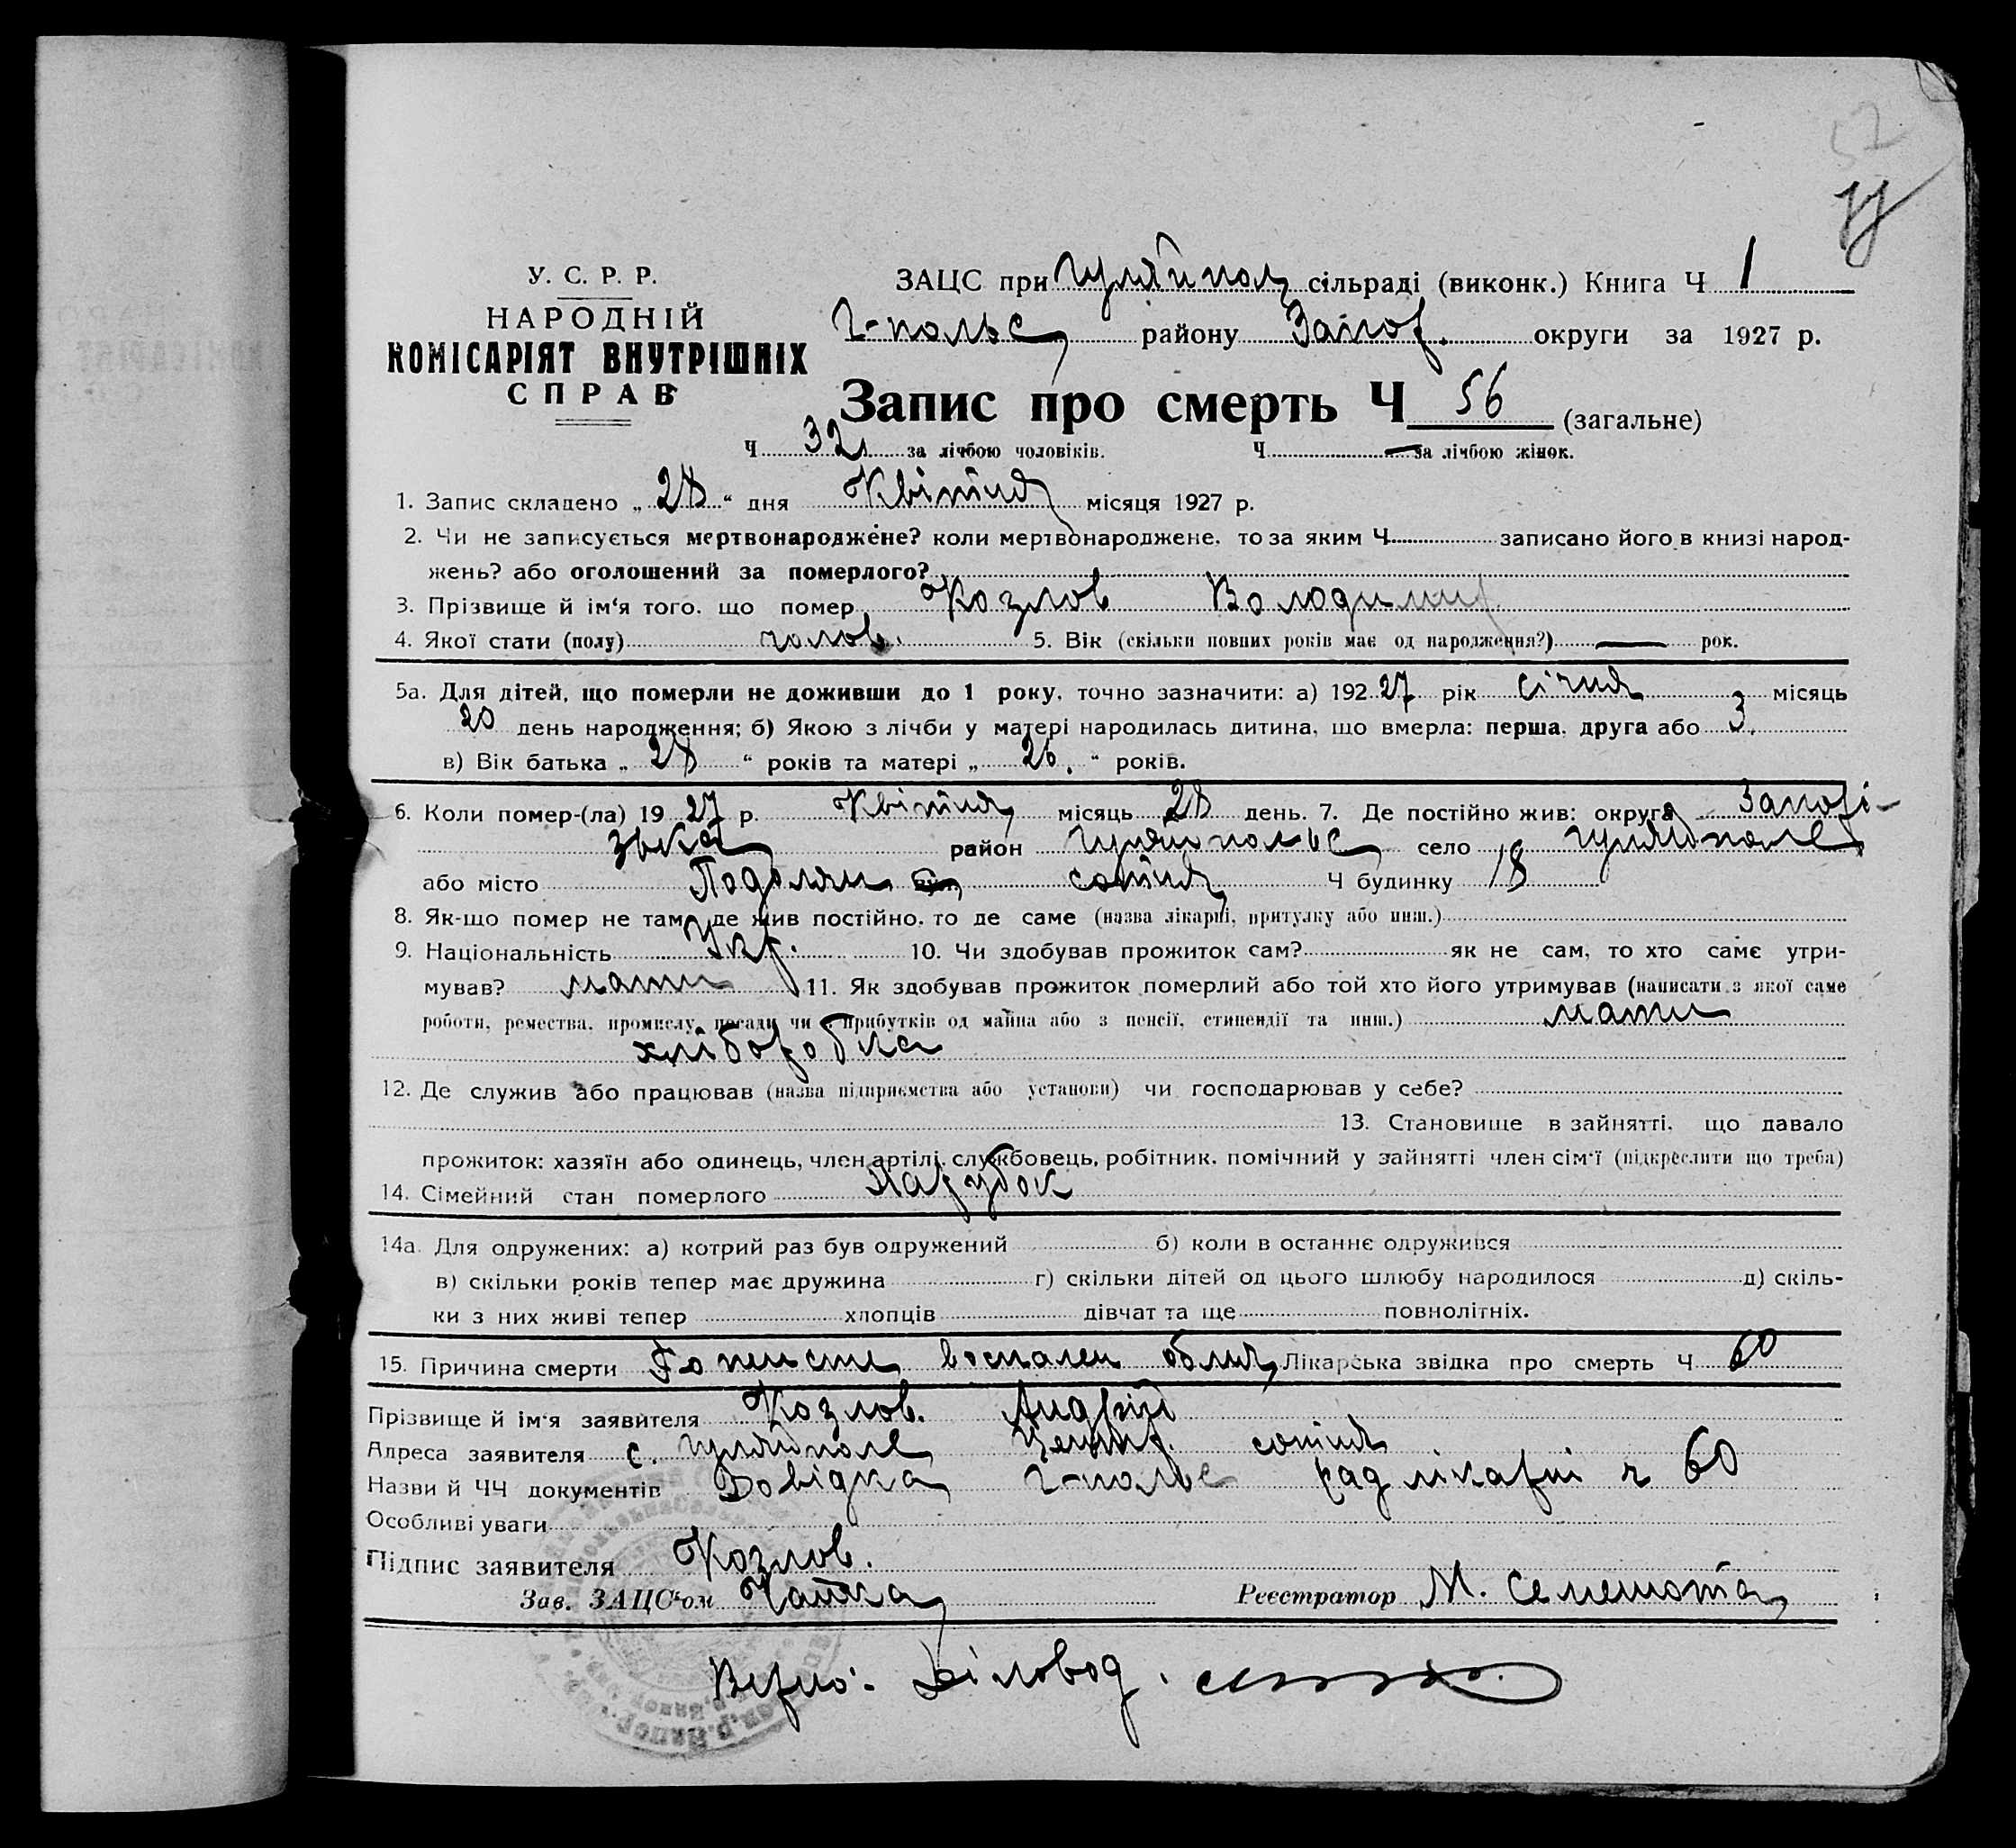 52
У. С. Р. Р.
НАРОДНІЙ
КОМІСАРІЯТ ВНУТРІШНІХ
СПРАВ
ЗАЦС при Гуляйпол сільраді (виконк.) Книга Ч 1
Г-польс району Запор. округи за 1927 р.
Запис про смерть Ч 56 (загальне)
Ч 32 за лічбою чоловіків. Ч — за лічбою жінок.
1. Запис складено „ 28 “ дня Квітня місяця 1927 р.
2. Чи не записується мертвонароджене? коли мертвонароджене, то за яким Ч записано його в книзі народ-
жень? або оголошений за померлого?
3. Прізвище й ім‘я того, що помер Козлов Володимир
4. Якої стати (полу) чолов. 5. Вік (скільки повних років має од народження?) — рок.
5а. Для дітей, що померли не доживши до 1 року, точно зазначити: а) 192 27 рік січня місяць
20 день народження; б) Якою з лічби у матері народилась дитина, що вмерла: перша, друга або 3.
в) Вік батька „ 28 “ років та матері „ 26. “ років.
6. Коли помер-(ла) 19 27 р. Квітня місяць 28 день. 7. Де постійно жив: округа Запорі-
зька район Гуляйпольс село Гуляйполе
або місто Подолян сотня Ч будинку 18
8. Як-що помер не там, де жив постійно, то де саме (назва лікарні, притулку або инш.)
9. Національність Укр. 10. Чи здобував прожиток сам? як не сам, то хто саме утри-
мував? мати 11. Як здобував прожиток померлий або той хто його утримував (написати з якої саме
роботи, ремества, промислу, посади чи з прибутків од майна або з пенсії, стипендії та инш.) мати
хліборобка
12. Де служив або працював (назва підприємства або установи) чи господарював у себе?
13. Становище в зайнятті, що давало
прожиток: хазяїн або одинець, член артілі, службовець, робітник, помічний у зайнятті член сім‘ї (підкреслити що треба)
14. Сімейний стан померлого Парубок
14а. Для одружених: а) котрий раз був одружений б) коли в останнє одружився
в) скільки років тепер має дружина г) скільки дітей од цього шлюбу народилося д) скіль-
ки з них живі тепер хлопців дівчат та ще повнолітніх.
15. Причина смерти воспален Лікарська звідка про смерть Ч 60
Прізвище й ім‘я заявителя Козлов. Андрій
Адреса заявителя с. Гуляйполе Центр. сотня
Назви й ЧЧ документів Довідка Г-польс рад лікарні ч 60
Особливі уваги
Підпис заявителя Козлов.
Зав. ЗАЦС‘ом Чайка Реєстратор М. Семенота
Верно: Діловод.